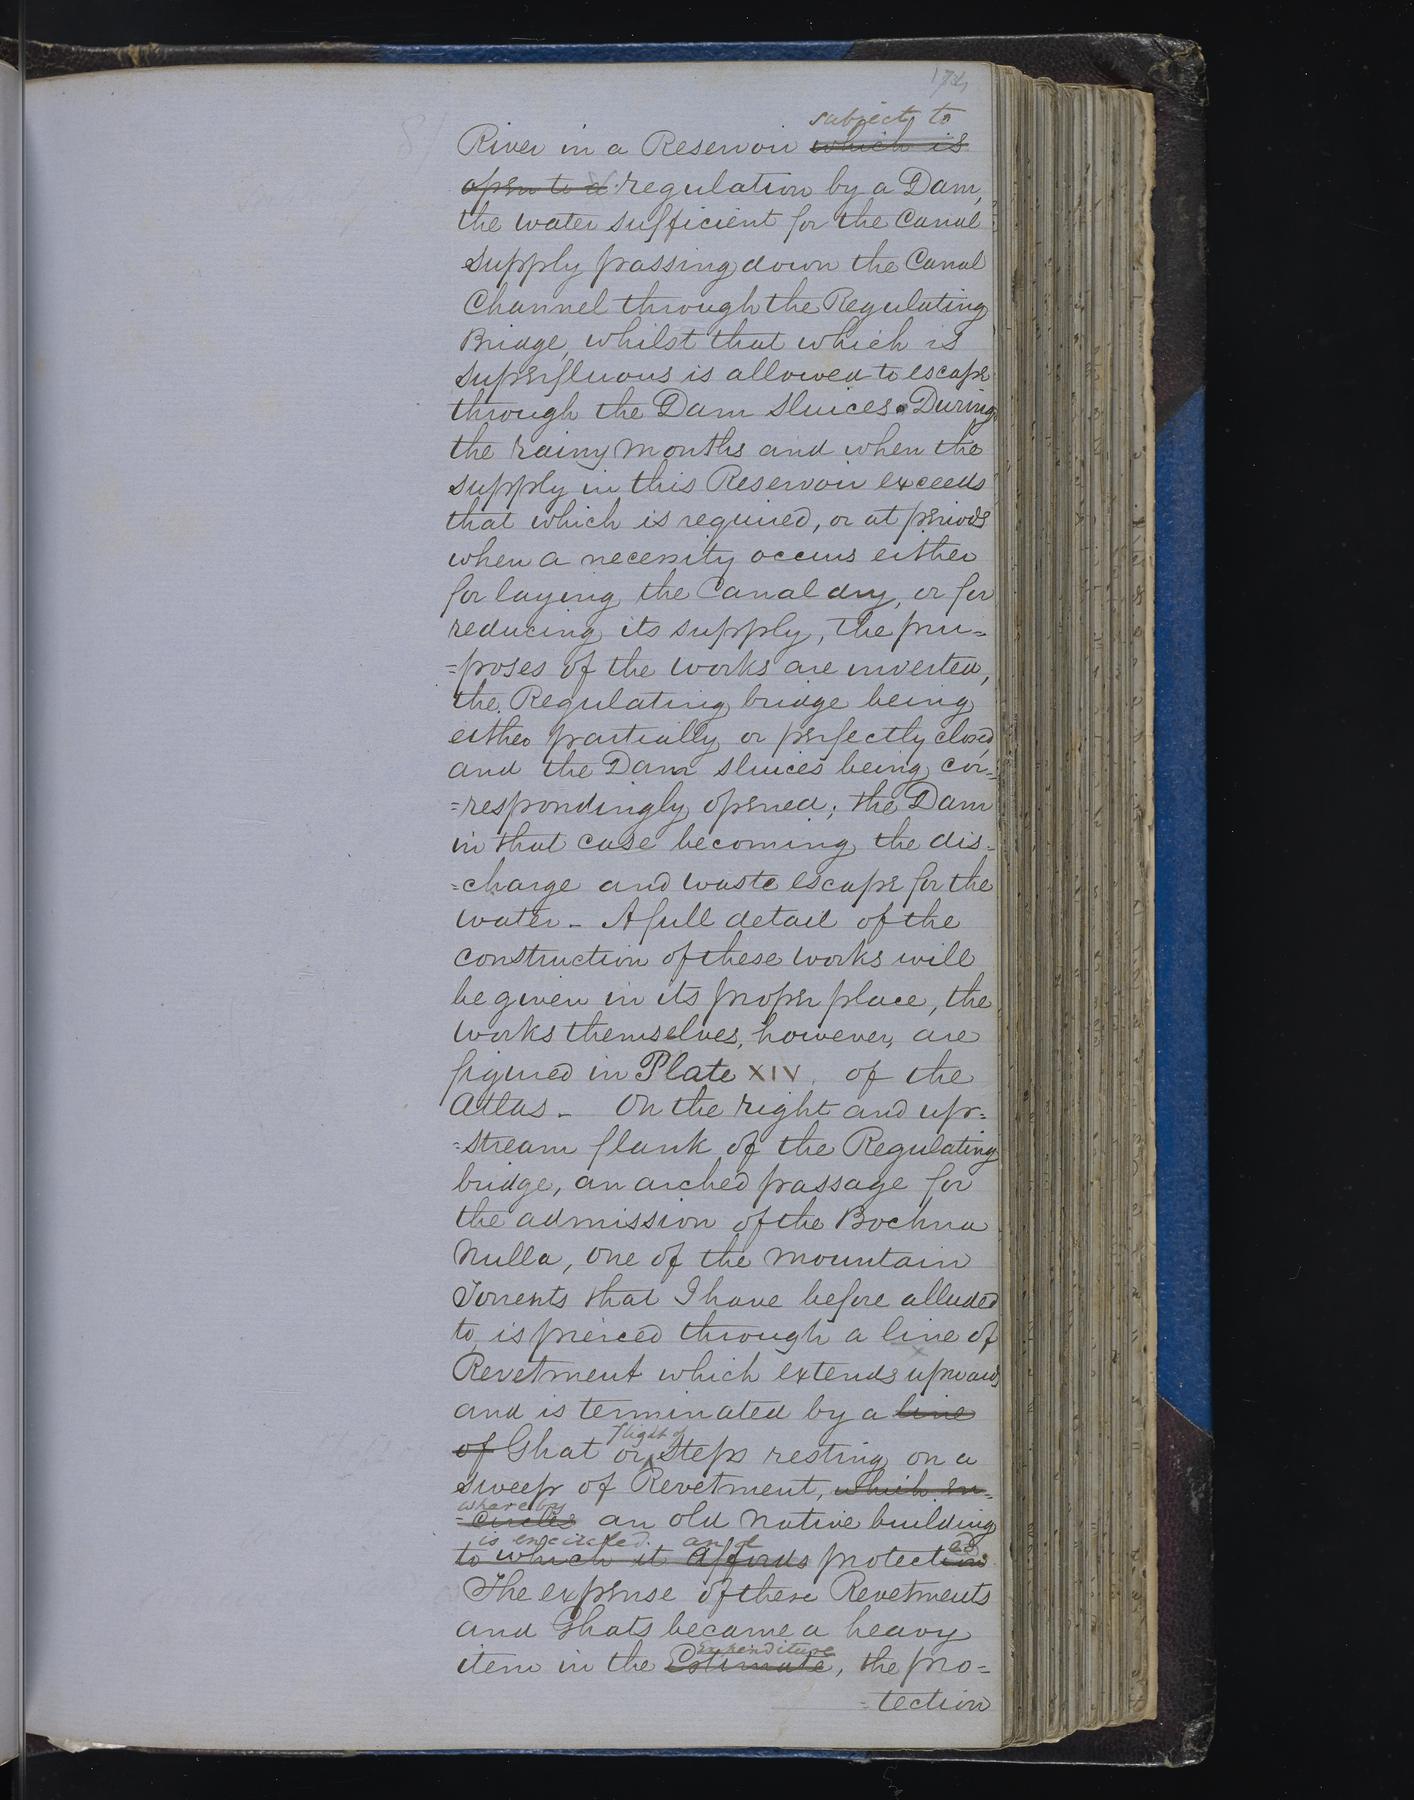 subject to
River in a Reservoir which is
open to a regulation by a Dam,
the water sufficient for the Canal
supply passing down the Canal
Channel through the Regulating
Bridge, whilst that which is
superfluous is allowed to escape
through the Dam sluices. During
the rainy months and when the
supply in this Reservoir exceeds
that which is required, or at periods
when a necessity occurs either
for laying the Canal dry, or for
reducing its supply, the pur=
=poses of the works are inverted,
the Regulating bridge being
either partially or perfectly closed
and the Dam sluices being cor=
=respondingly opened; the Dam
in that case becoming the dis=
=charge and waste escape for the
water - A full detail of the
construction of these works will
be given in its proper place, the
works themselves, however, are
figured in Plate XIV. of the
Atlas - On the right and up=
=stream flank of the Regulating
bridge, an arched passage for
the admission of the Bochna
Nulla, one of the mountain
Torrents that I have before alluded
to, is pierced through a line of
Revetment which extends upwards
and is terminated by a line
flight of
of Ghat or Steps resting on a
sweep of Revetment, which en=
whereby
=circles an old native building
is encircled and ed
to which it affords protection
The expense of these Revetments
and Ghats became a heavy
Expenditure
item in the Estimate, the pro=
=tection